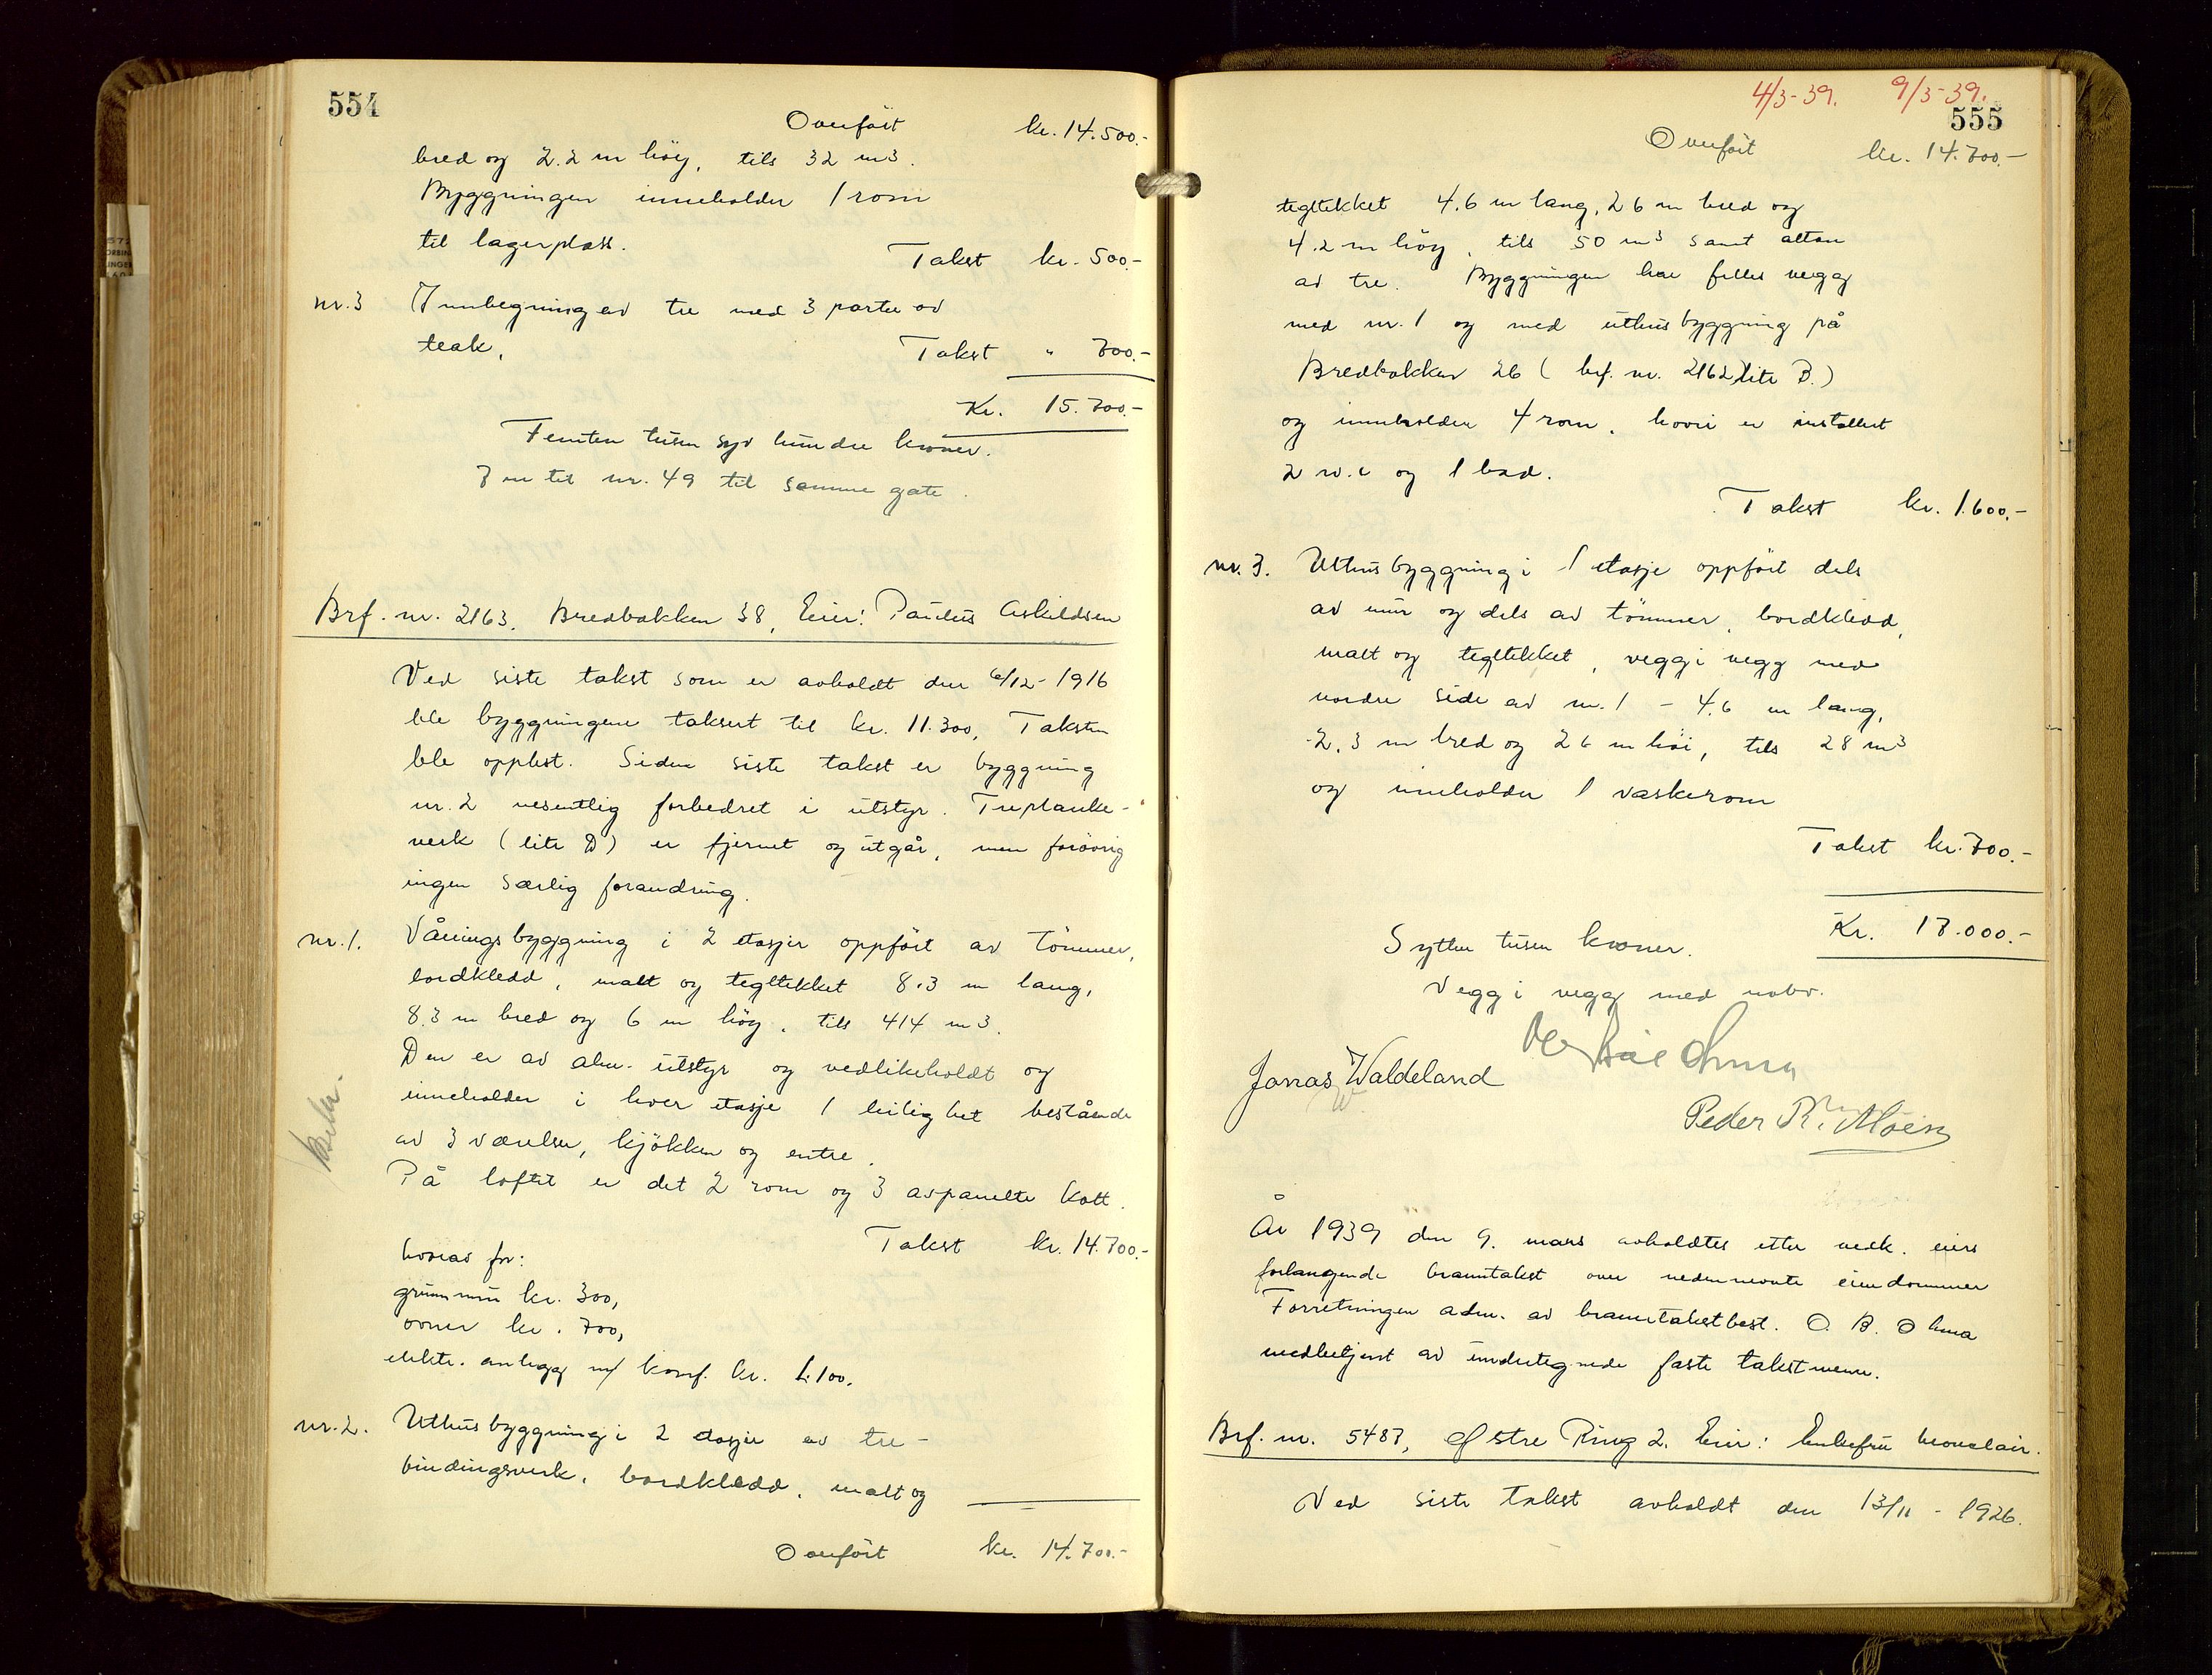 554
Overført kr. 14.500.-
bred og 2.2 m høy, tils 32 m3.
Byggningen inneholder 1 rom
til lagerplass.
Takst kr. 500.-
nr. 3 Innhegning av tre med 3 porter av
teak,
Takst " 700.-
Kr. 15.700.-
Femten tusen syv hundre kroner.
7 m til nr. 49 til samme gate.
Brf. nr. 2163. Bredbakken 38, Eier: Paulus Askildsen
Ved siste takst som er avholdt den 6/12-1916
ble byggningene taksert til kr. 11.300, Taksten
ble opplest. Siden siste takst er byggning
nr. 2 vesentlig forbedret i utstyr. Treplanke-
verk (litr D) er fjernet og utgår, men forøvrig
ingen særlig forandring.
nr. 1. Våningsbyggning i 2 etasjer oppført av tømmer,
bordkledd, malt og tegltekket 8.3 m lang,
8.3 m bred og 6 m høy, tils 414 m3.
Den er av alm. utstyr og vedlikeholdt og
inneholder i hver etasje 1 leilighet bestående
av 3 værelser, kjøkken og entre.
På loftet er det 2 rom og 3 avpanelte kott.
Takst kr. 14.700.-
hvorav for:
grunnmur kr. 300,
ovner kr. 700,
elektr. anlegg m/ komf. kr. 1.100.
nr. 2. Uthusbyggning i 2 etasjer av tre-
bindingsverk, bordkledd, malt og
Overført kr. 14.700.-
4/3-39. 9/3-39.
555
Overført kr. 14.700.-
tegltekket 4.6 m lang, 2.6 m bred og
4.2 m høy, tils 50 m3 samt altan
av tre. Byggningen har felles vegg
med nr. 1 og med uthusbyggning på
Bredbakken 26 (brf. nr. 2162 litr D.)
og inneholder 4 rom, hvori er installert
2 w.c og 1 bad.
Takst kr. 1.600.-
nr. 3. Uthusbyggning i 1 etasje oppført dels
av mur og dels av tømmer, bordkledd,
malt og tegltekket, vegg i vegg med
nordre side av nr. 1 - 4.6 m lang,
2.3 m bred og 2.6 m høi, tils 28 m3
og inneholder 1 vaskerom
Takst kr. 700.-
Kr. 17.000.-
Sytten tusen kroner.
Vegg i vegg med nabo.
Jonas Waldeland
Peder R. Moen
År 1939 den 9. mars avholdtes etter vedk. eiers
forlangende branntakst over nedennevnte eiendommer
Forretningen adm. av branntakstbest. O. B. Ohma
medbetjent av undertegnede faste takstmenn.
Brf. nr. 5487, Østre Ring 2. Eier: Enkefru
Ved siste takst avholdt den 13/11 - 1926.